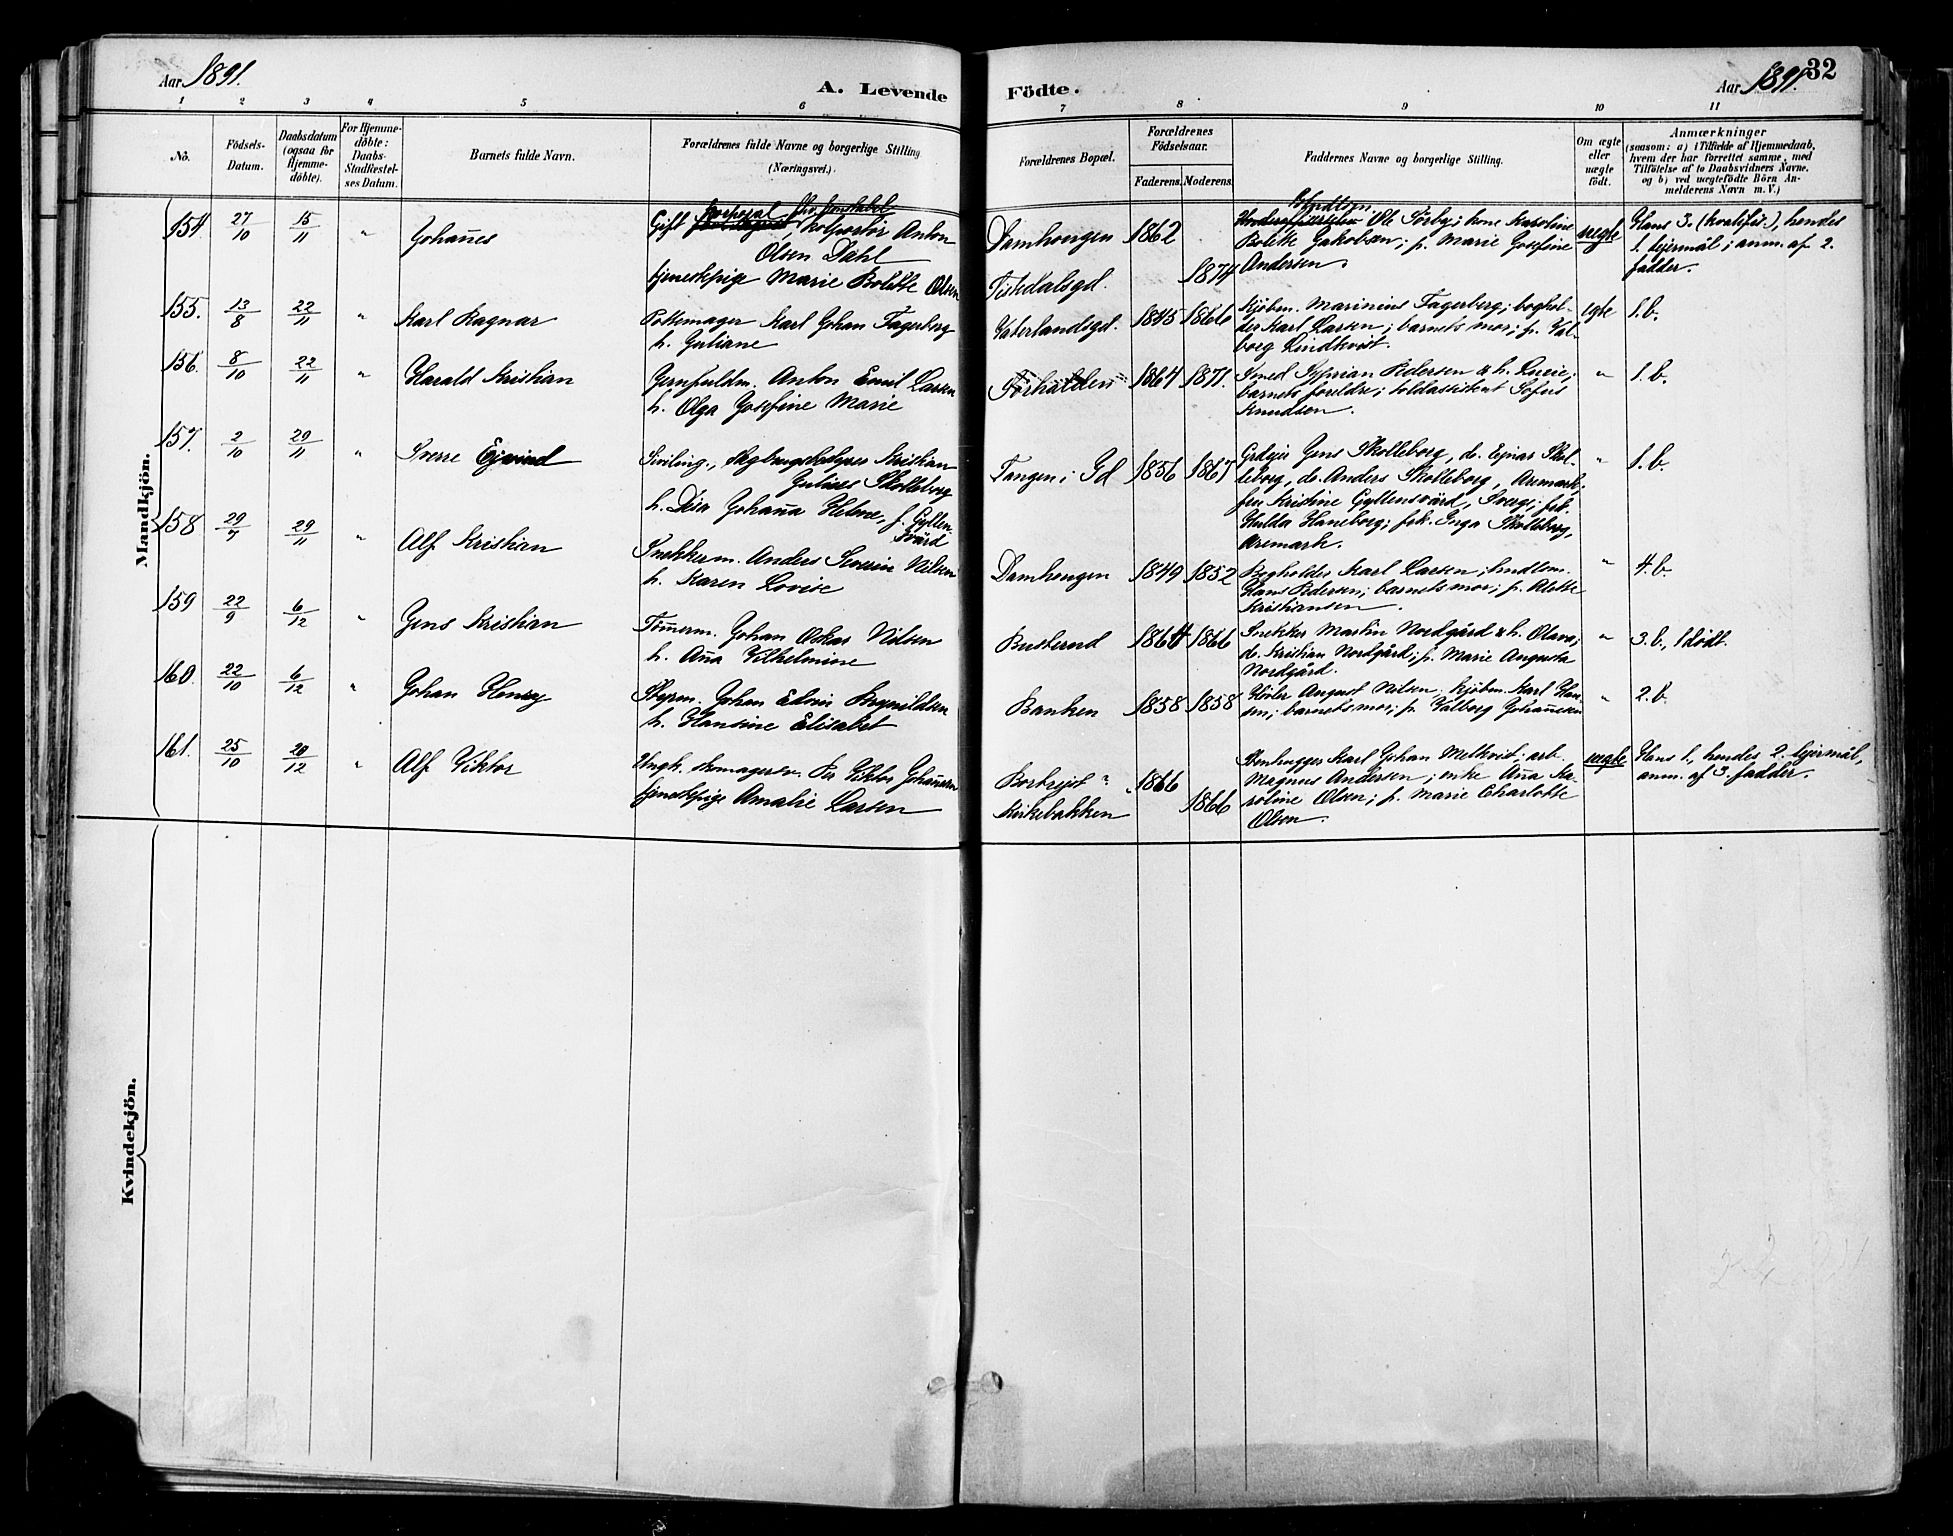 Aar 1891.
A. Levende Födte.
Aar 1891.
32
1 2 3 4 5 6 7 8 9 10 11
No.
Födsels-
Datum.
Daabsdatum
(ogsaa for
Hjemme-
döbte).
For Hjemme-
döbte:
Daabs-
Stadfæstel-
ses Datum.
Barnets fulde Navn.
Forældrenes fulde Navne og borgerlige Stilling
(Næringsvei.)
Forældrenes Bopæl.
Forældrenes
Födselsaar.
Faderens. Moderens.
Faddernes Navne og borgerlige Stilling.
Om ægte
eller
uægte
födt.
Anmærkninger
(saasom: a) i Tilfælde af Hjemmedaab,
hvem der har forrettet samme, med
Tilföielse af to Daabsvidners Navne,
og b) ved uægtefödte Börn An-
melderens Navn m. V.)
Mandkjön.
154. 27/10 15/11 " Johan̄es
Gift kolportör Anton
Olsen Dahl
tjenestepige Marie Bolette Olsen
Damhougen 1862
Tistedalsgd. 1874
Ole Törby; kone Karoline
Bolette Jakobsen; p. Marie Josefine
Andersen.
uegte
Hans 3. (kvalifis.), hendes
1. leiermål; anm. af 2.
fadder.
155. 13/8 22/11 " Karl Ragnar
Pottemager Karl Johan Fagerberg
h. Juliane
Vaterlandsgd. 1845 1866
Kjöbm. Marinius Fagerberg; boghol-
der Karl Larsen; barnets mor; p. Val-
borg Lindkvist.
egte 1.b.
156. 8/10 22/11 " Harald Kristian
Jernfuldm. Anton Emil Larsen
h. Olga Josefine Marie
1864 1871.
Smed Syprian Pedersen & h. Lucie;
barnets foreldre; toldassistent Sofus
Knudsen.
" 1.b.
157. 2/10 29/11 " Sverre Ejvind
Siviling., Kristian
Julius Skolleborg
h. Disa Johan̄a Helene, f. Gyllen
svärd
Tangen i Id 1856 1867
Jens Skolleborg, do. Ejnar Skol-
leborg, do. Anders Skolleborg, Aremark;
fru Kristine Gyllensvärd, Sverg; frk.
Hulda Haneborg; frk. Inga Skolleborg,
Aremark.
" 1.b.
158 29/7 29/11 " Alf Kristian
Snekkerm. Anders Severin Nilsen
h. Karen Lovise
Damhougen 1849 1852
Bogholder Karl Larsen; hndlm.
Hans Pedersen; barnets mor; p. Alette
Kristiansen.
" 4.b.
159 22/9 6/12 " Jens Kristian
Töm̄erm. Johan Oskar Nilsen
h. An̄a Vilhelmine
Buskerud 1864 1866
Snekker Martin Nordgård & h. Olava;
do. Kristian Nordgård; p. Marie Augusta
Nordgård.
" 3.b., 1 dödt.
160. 22/10 6/12 " Johan Henry
Johan Edvin Brynildsen
h. Hansine Elisabet
Banken 1858 1858
August Nilsen; kjöbm. Karl Han-
sen; barnets mor; p. Valborg Johan̄esen
" 2.b.
161. 25/10 20/12 " Alf Viktor
Ungk. skomagersv. Per Viktor Johan̄sen
tjenestepige Amalie Larsen
" 1866
Kirkebakken 1866
Stenhugger Karl Johan Melkvist; arb.
Magnus Andersen; enke An̄a Ka-
roline Olsen; p. Marie Charlotte
Olson.
uegte
Hans 1., hendes 2. leiermål,
anm. af 3. fadder.
Kvindekjön.